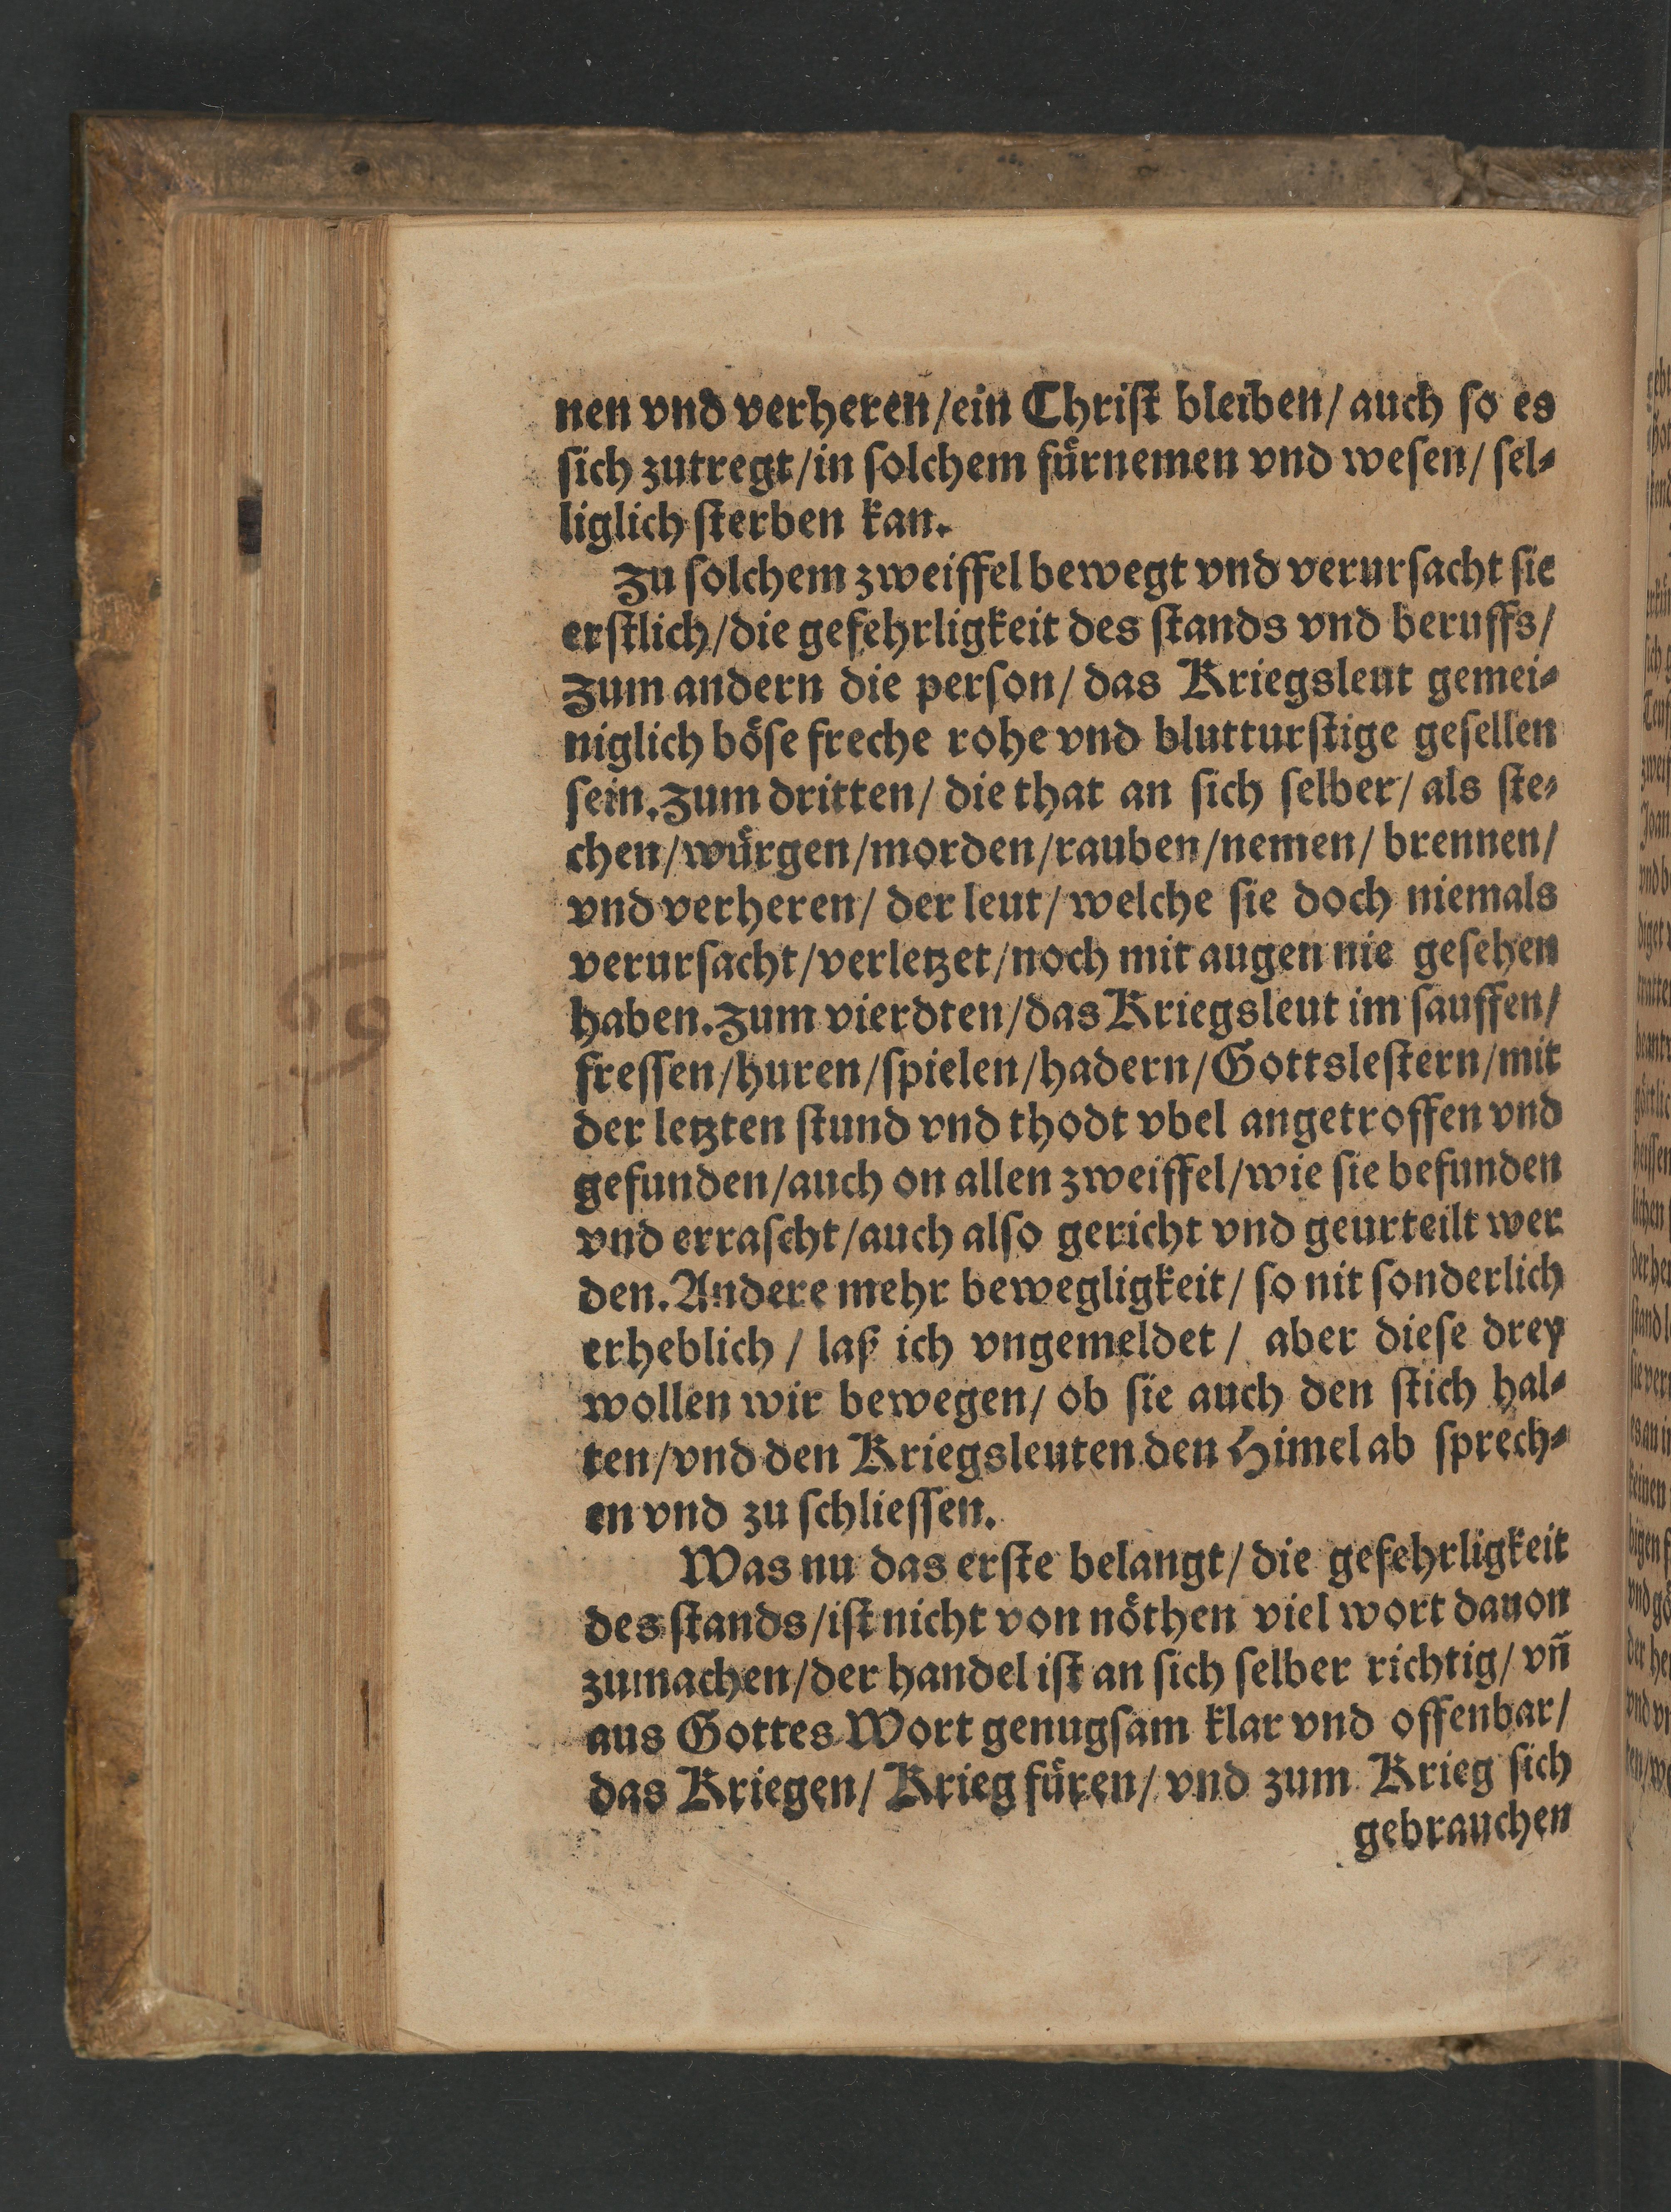 nen vnd verheren/ein Chriſt bleiben/ auch ſo es
ſich zutregt/in ſolchem fuͤrnemen vnd weſen/ ſel⸗
liglich ſterben kan.
Zu ſolchem zweiffel bewegt vnd verurſacht ſie
erſtlich/die gefehrligkeit des ſtands vnd beruffs/
Zum andern die perſon/ das Kriegsleut gemei⸗
niglich boͤſe freche rohe vnd blutturſtige geſellen
ſein. Zum dritten/ die that an ſich ſelber/ als ſte⸗
chen/wuͤrgen/morden/rauben/nemen/ brennen/
vnd verheren/ der leut/ welche ſie doch niemals
verurſacht/verletzet/noch mit augen nie geſehen
haben. Zum vierdten/das Kriegsleut im ſauffen/
freſſen/huren/ſpielen/hadern/Gottsleſtern/mit
der letzten ſtund vnd thodt vbel angetroffen vnd
gefunden/auch on allen zweiffel/wie ſie befunden
vnd erraſcht/auch alſo gericht vnd geurteilt wer
den. Andere mehr bewegligkeit/ ſo nit ſonderlich
erheblich / laß ich vngemeldet / aber dieſe drey
wollen wir bewegen/ ob ſie auch den ſtich hal⸗
ten/vnd den Kriegsleuten den Himel ab ſprech⸗
en vnd zu ſchlieſſen.
Was nu das erſte belangt/ die gefehrligkeit
des ſtands/iſt nicht von noͤthen viel wort dauon
zumachen/der handel iſt an ſich ſelber richtig/ vñ
aus Gottes Wort genugſam klar vnd offenbar/
das Kriegen/ Krieg fuͤren/ vnd zum Krieg ſich
gebrauchen